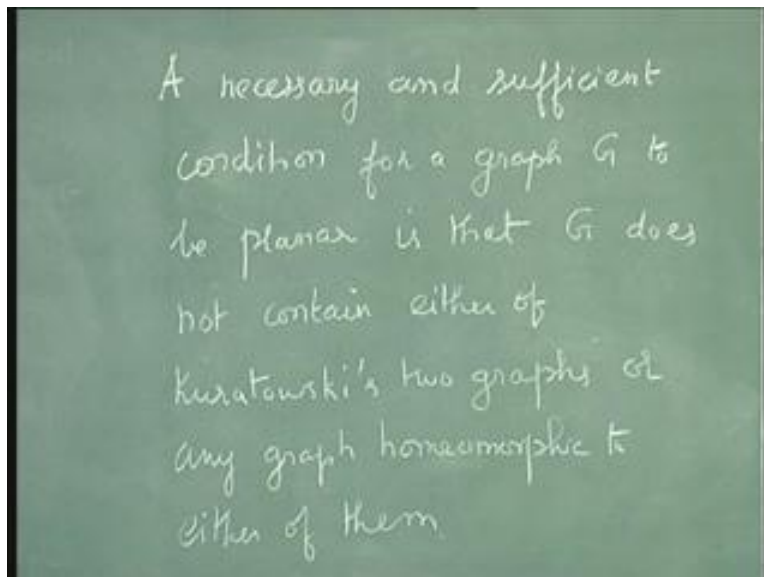 A necessary and sufficient
condition for a graph G to
be planar is that G does
not contain either of
Kuratowski's two graphs or
any graph homeomorphic to
either of them.